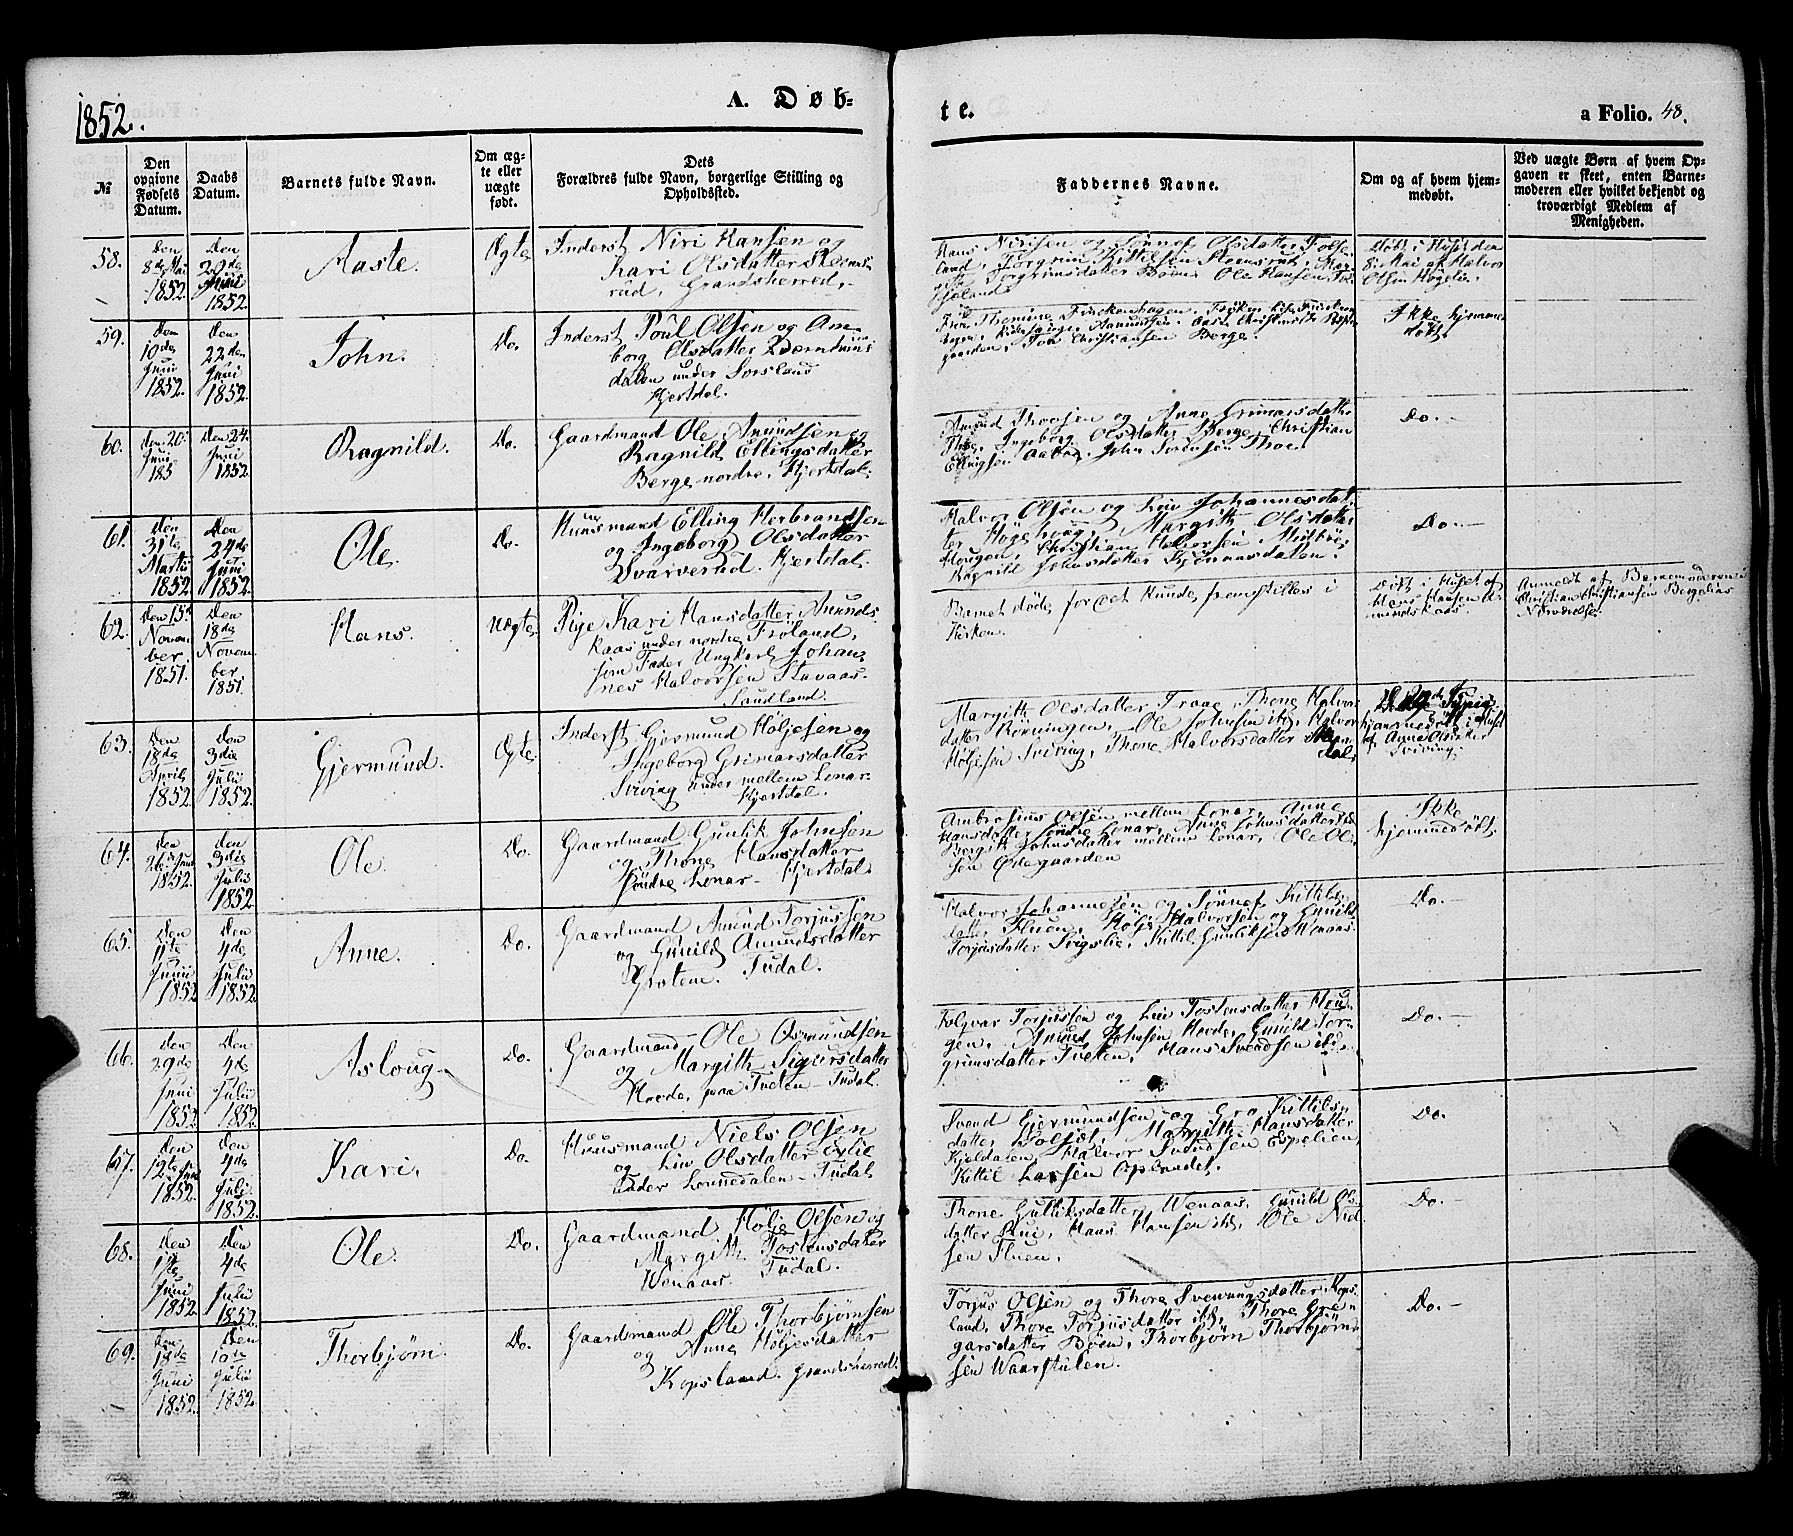 1852.
A. Døb-
te.
a Folio. 48.
№
Den opgivne Fødsels Datum.
Daabs Datum.
Barnets fulde Navn.
Om ægte eller uægte født.
Dets Forældres fulde Navn, borgerlige Stilling og Opholdssted.
Faddernes Navne.
Om og af hvem hjemmedøbt.
Ved uægte Børn af hvem Opgaven er skeet, enten Barnemoderen eller hvilket bekjendt og troværdigt Medlem af Menigheden.
58.
den 8de Mai 1852
Den 20de 1852
Aaste.
Ægte
Inderst Niri Hansen og
Kari Olsdatter
rud, Gransherred,
Hans Nirisen og Sønnef Olsdatter
land, Torgrim Kittilsen
Torgrimsdatter Bøen Ole Hansen
Døbt i Huset den
8 Mai af Halvor
Olsen Høgelie.
59.
den 10de Juni 1852.
den 22den Juni 1852.
John.
Do.
Inderst Poul Olsen og Am-
borg Olsdatter
dalen under Sorsland
Hjertdal.
Christiansen Berge.
Ikke hjemme
døbt.
60.
den 20. Juni 185
Den 24. Juni 1852.
Ragnild.
Do.
Gaardmand Ole Amundsen og
Ragnild Ellingsdatter
Berge nordre, Hjertdal.
Amund Thovsen og Anne Grimarsdatter
Thoe, Ingeborg Olsdatter Berge, Christian
Ellingsen Aabøe, John Sørensen Thoe.
Do.
61.
Den 31te Marts 1852
Den 24de Juni 1852.
Ole.
Do.
Huusmand Elling Herbrandsen
og Ingeborg Olsdatter
Svarverud. Hjertdal.
Halvor Olsen og Liv Johannesdat-
ter Høgehoug, Margith Olsdatter
Hougen, Christian Halvorsen Midbøe,
Ragnild Johnsdatter
Do.
62.
Den 15de November 1851.
Den 18de November 1851.
Hans.
Uægte
Pige Kari Hansdatter Amunds
kaas under nordre Frøland,
som Fader Ungkarl Johan-
nes Halvorsen Stavaas
Sandland.
Barnet døde, før det kunde fremstilles i
Kirken.
Døbt i Huset af
Hans Hansen A-
mundskaas.
Anmeldt af Barnemoderen
Christian Christiansen Bergelias
Nærværelse.
63.
Den 18de April 1852
den 3die Julii 1852.
Gjermund.
Ægte
Inderst Gjermund Høljesen og
Ingeborg Grimarsdatter
Sviving under mellem Lonar
Hjertdal.
Margith Olsdatter Traae, Thone Halvors
datter Rønningen, Ole Johnsen ibd, Halvor
Høljesen Sviving, Thone Halvorsdatter
dal.
hjemmedøbt i Huset
af Anne
Sviving.
64.
den 26 Juni 1852.
den 3die Julii 1852
Ole.
Do.
Gaardmand Gunlik Johnsen
og Thone Hansdatter
søndre Lonar - Hjertdal.
Ambrosius Olsen mellem Lonar, Anne
Hansdatter søndre Lonar, Anne Johnsdatter ibd
Bergith Johnsdatter mellem Lonar, Ole Ol-
sen Ødegaarden
Ikke
hjemmedøbt.
65.
Den 11te Junii 1852
Den 4de Julii 1852.
Anne.
Do.
Gaardmand Amund Torjussen
og Gunild Amundsdatter
Grotene. Tudal.
Halvor Johannesen og Sønnef Kittils
datter Fluen, Hølje Halvorsen og Gunild
Torjusdatter Svigslie, Kittil Gunliksen Wenaas.
Do.
66.
Den 29de Juni 1852.
Den 4de Julii 1852.
Asloug
Do.
Gaardmand Ole Osmundsen
og Margith Sigursdatter
Hovde paa Tveten - Tudal.
Folqvar Torjussen og Liv Tostensdatter Hou-
gen, Amund Johnsen Hovde, Gunild Tor-
grimsdatter Tveten, Hans Svendsen ibd.
Do.
67.
Den 12te Juni 1852.
Den 4de Juli 1852.
Kari.
Do.
Huusmand Niels Olsen
og Liv Olsdatter Eylie
under Lonnedalen - Tudal
Svend Gjermundsen og Gro Kittils
datter Bølsjøt, Margith Hansdatter
Kjeldalen, Halvor Svendsen Espelien,
Kittil Larsen Opbradet.
Do.
68.
Den 1te Juni 1852
Den 4de Julii 1852.
Ole.
Do.
Gaardmand Hølje Olsen og
Margith Tostensdatter
Wenaas. Tudal.
Thone Gulliksdatter Wenaas. Gunild Ols
datter Flui, Hans Hansen ibd, Ole Niel
sen Fluen.
Do.
69.
Den 18de Juni 1852.
Den 10de Julii 1852.
Thorbjørn.
Do.
Gaardmand Ole Thorbjørnsen
og Anne Høljesdatter
Kopsland. Grandsherred.
Torjus Olsen og Thore Svenungsdatter Kops-
land, Thore Torjusdatter ibd, Thore Gre-
garsdatter Bøen, Thorbjørn Thorbjørn
sen Waarstulen.
Do.